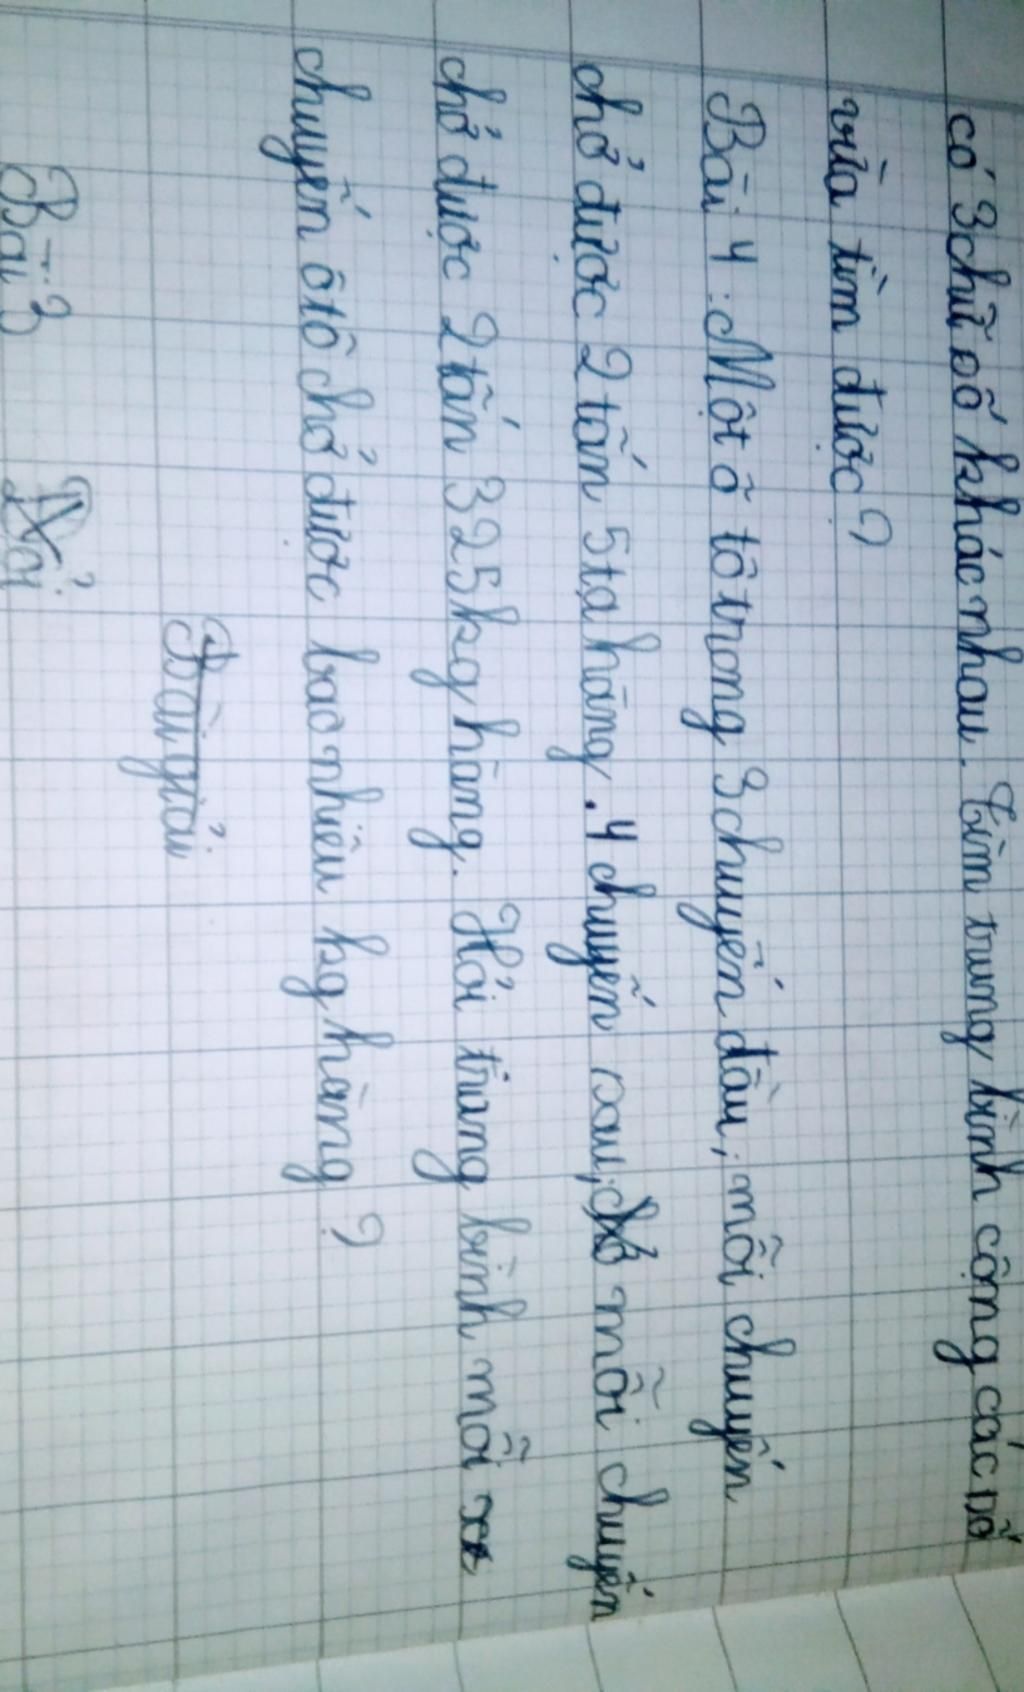 có 3 chữ số khác nhau. Tìm trung bình cộng các số
vừa tìm được?
Bài 4: Một ô tô trong 3 chuyến đầu, mỗi chuyến
chở được 2 tấn 5 tạ hàng. 4 chuyến sau, mỗi chuyến
chở được 2 tấn 325kg hàng. Hỏi trung bình mỗi
chuyến ôtô chở được bao nhiêu kg hàng?
Bài giải
Bài 3